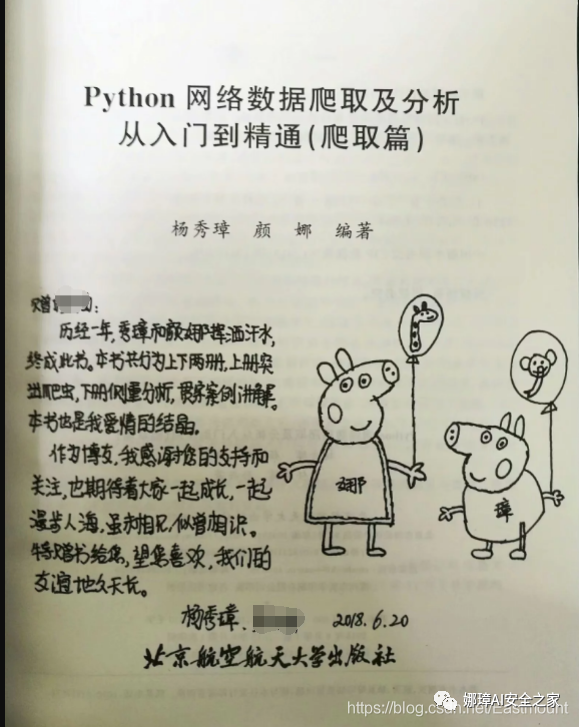 Python 网络数据爬取及分析
从入门到精通(爬取篇)
杨秀璋 颜 娜 编著
赠 :
历经一年,秀璋和颜娜挥洒汗水,
终成此书。本书共分为上下两册,上册突
出爬虫,下册侧重分析,贯穿案例讲解。
本书也是我爱情的结晶。
作为博友,我感谢您的支持和
关注,也期待着大家一起成长,一起
漫步人海,虽未相见,似曾相识。
特赠书给您,望您喜欢,我们的
友谊地久天长。
娜
璋
杨秀璋、 2018.6.20
北京航空航天大学出版社
娜璋AI安全之家
https://blog.csdn.net/Eastmount